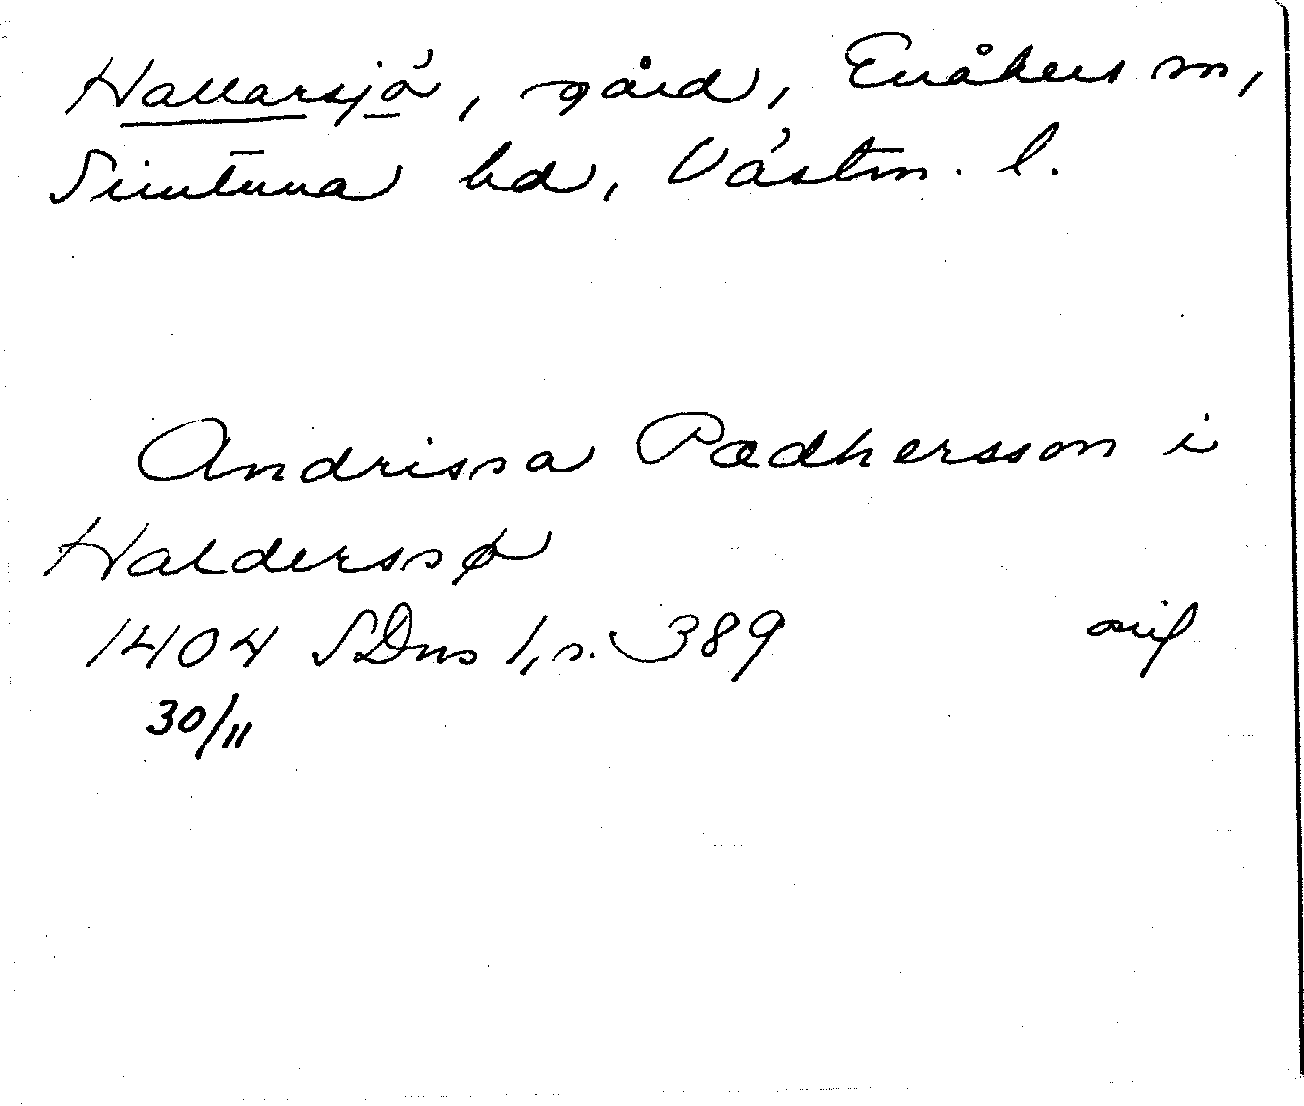 Hallarsjö, gård, Enåkers sn,
Simtuna hd, Västm. l.
Andrissa Pædhersson i
Halderssø
1404 SDns 1, s. 389
30/11